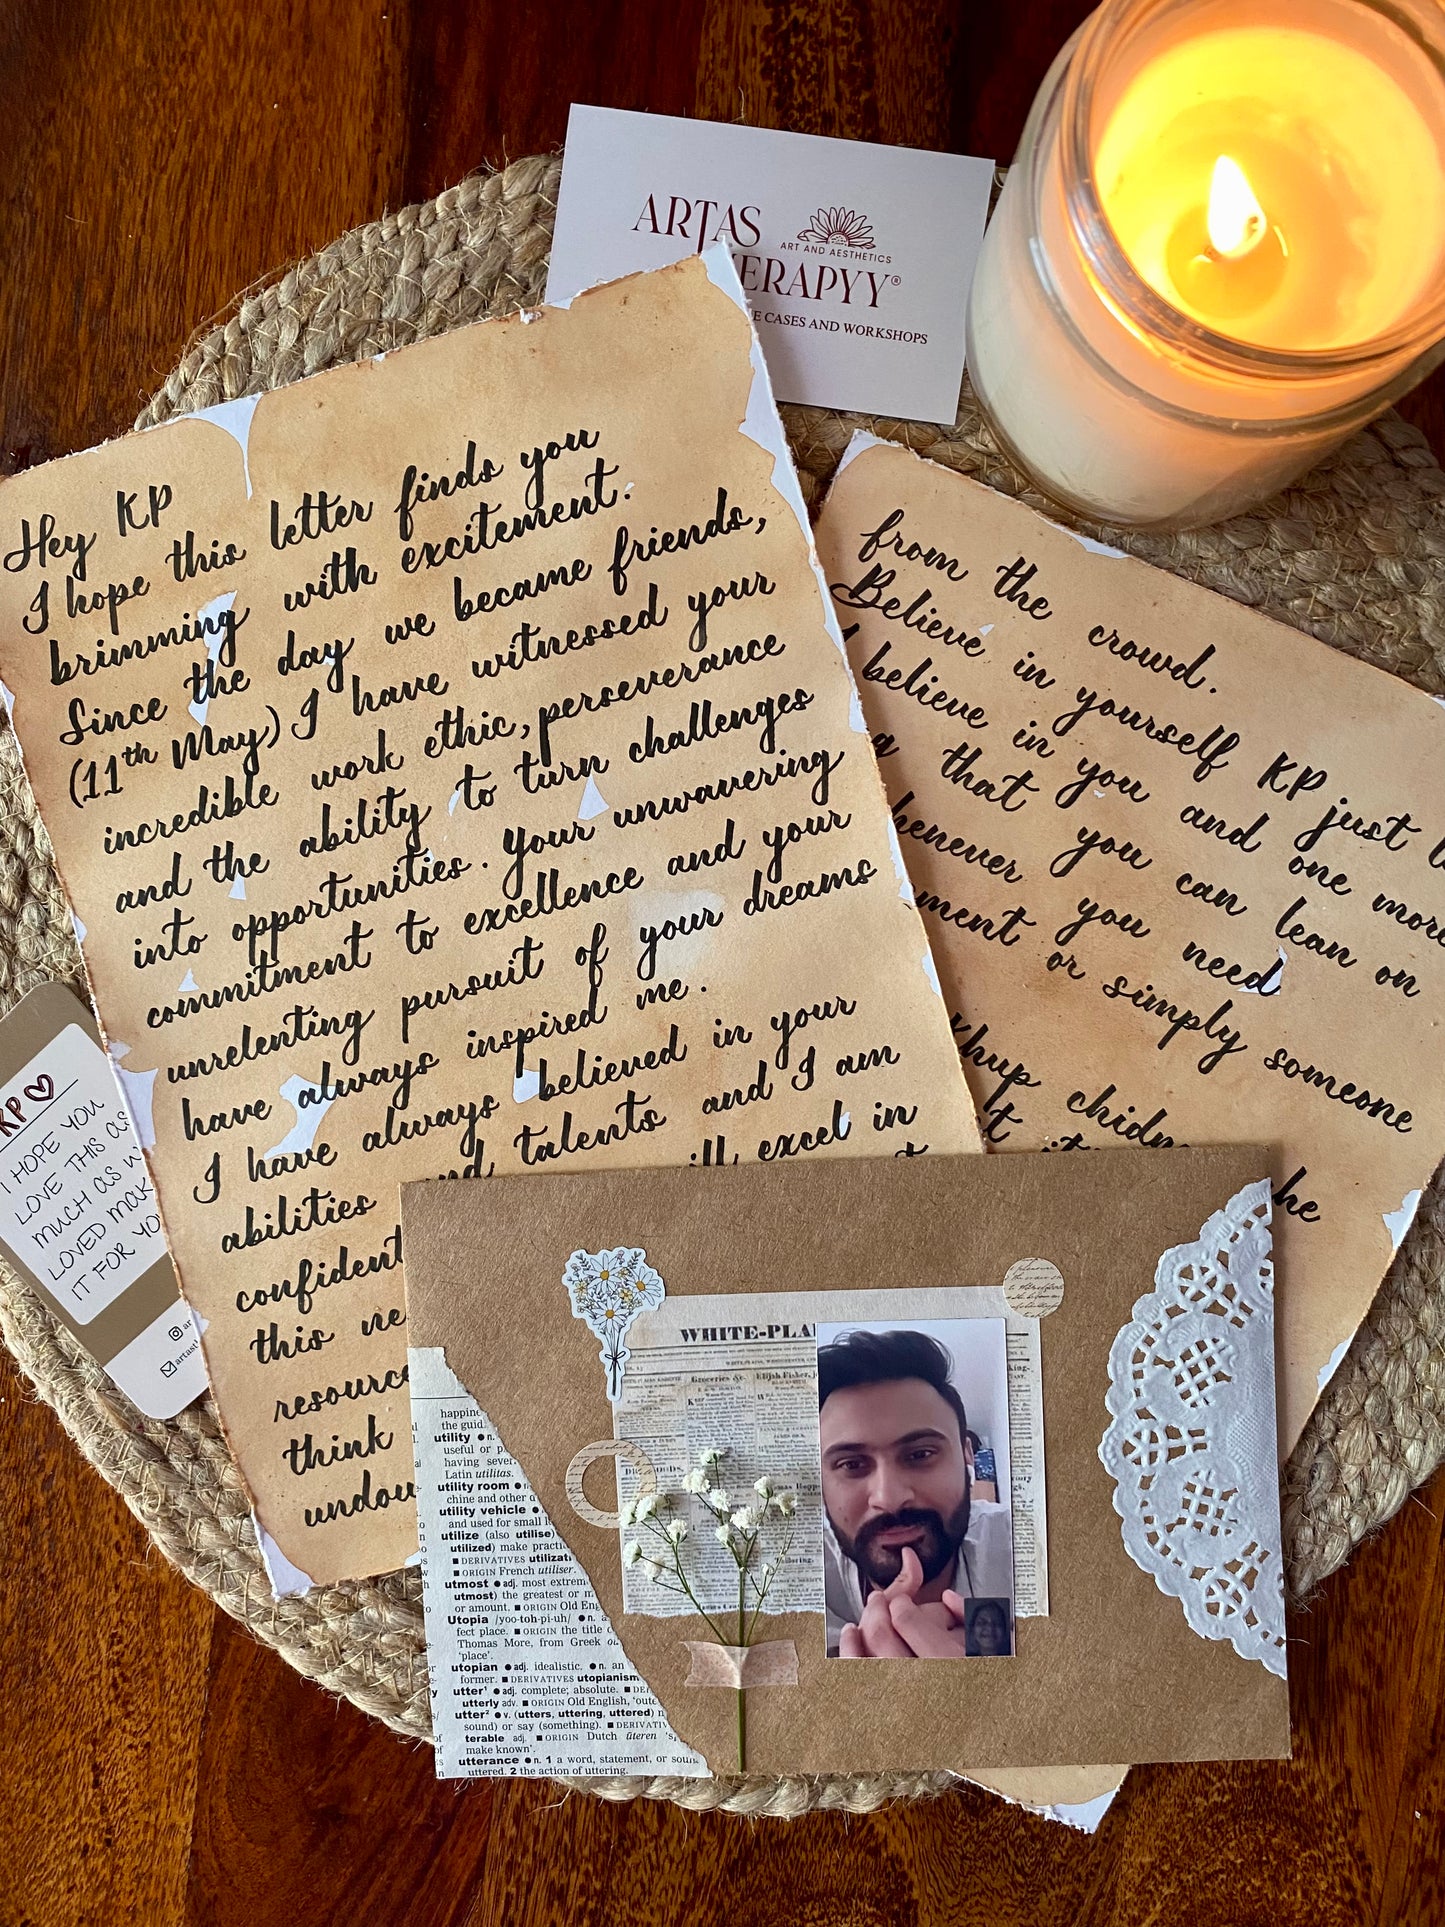 ARTAS
ART AND AESTHETICS
ERAPYY®
E CASES AND WORKSHOPS
Hey KP
I hope this letter finds you
brimming with excitement.
Since the day we became friends,
(11th May) I have witnessed your
incredible work ethic, perseverance
and the ability to turn challenges
into opportunities. Your unwavering
commitment to excellence and your
unrelenting pursuit of your dreams
have always inspired me.
I have always believed in your
abilities and talents and I am
confident ill excel in
this ne
resource
think
undou
from the crowd.
Believe in yourself KP just
I believe in you and one more
that you can lean on
henever you need
ment or simply someone
he
KP
I HOPE YOU
LOVE THIS AS
MUCH AS
LOVED MAK
IT FOR YO
WHITE-PLA
Groceries &c.
Elijah Fisher,
happine
the guid
utility ●n.
useful or p
having sever
Latin utilitas.
utility room ●n
chine and other
utility vehicle ●
and used for small
utilize (also utilise)
utilized) make practi
■ DERIVATIVES utilizat
■ ORIGIN French utiliser.
utmost ●adj. most extrem
utmost) the greatest or m
or amount. ■ ORIGIN Old Eng
Utopia /yoo-toh-pi-uh/ ●n. a
fect place. ■ ORIGIN the title
Thomas More, from Greek ou
'place'.
utopian ●adj. idealistic. ●n. an
former. ■ DERIVATIVES utopianism
utter¹ ●adj. complete; absolute. ■ DE
utterly adv. ■ ORIGIN Old English, 'oute
utter² ●v. (utters, uttering, uttered)
sound) or say (something). ■ DERIVATIV
terable adj. ■ ORIGIN Dutch ūteren 's
make known'.
utterance ●n. 1 a word, statement, or soun
uttered. 2 the action of uttering.